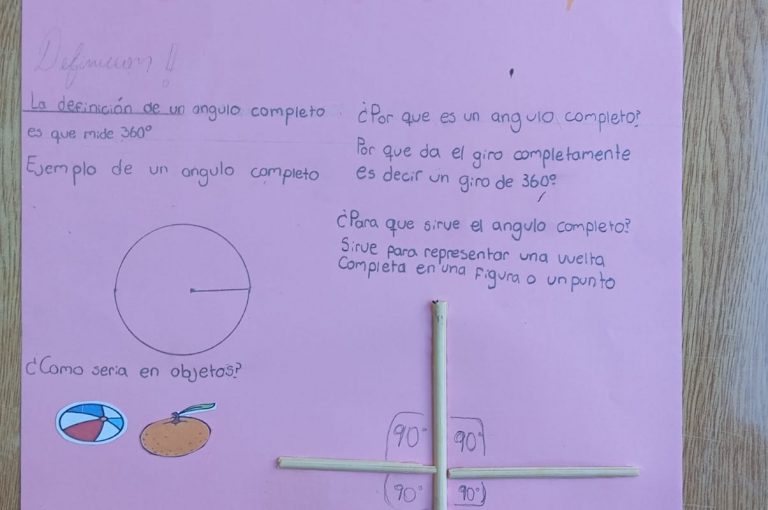 Definicion!!
La definición de un angulo completo
es que mide 360°
Ejemplo de un angulo completo
¿Como seria en objetos?
¿Por que es un angulo completo?
Por que da el giro completamente
es decir un giro de 360°
¿Para que sirve el angulo completo?
Sirve para representar una vuelta
Completa en una figura o un punto
90° 90°
90° 90°